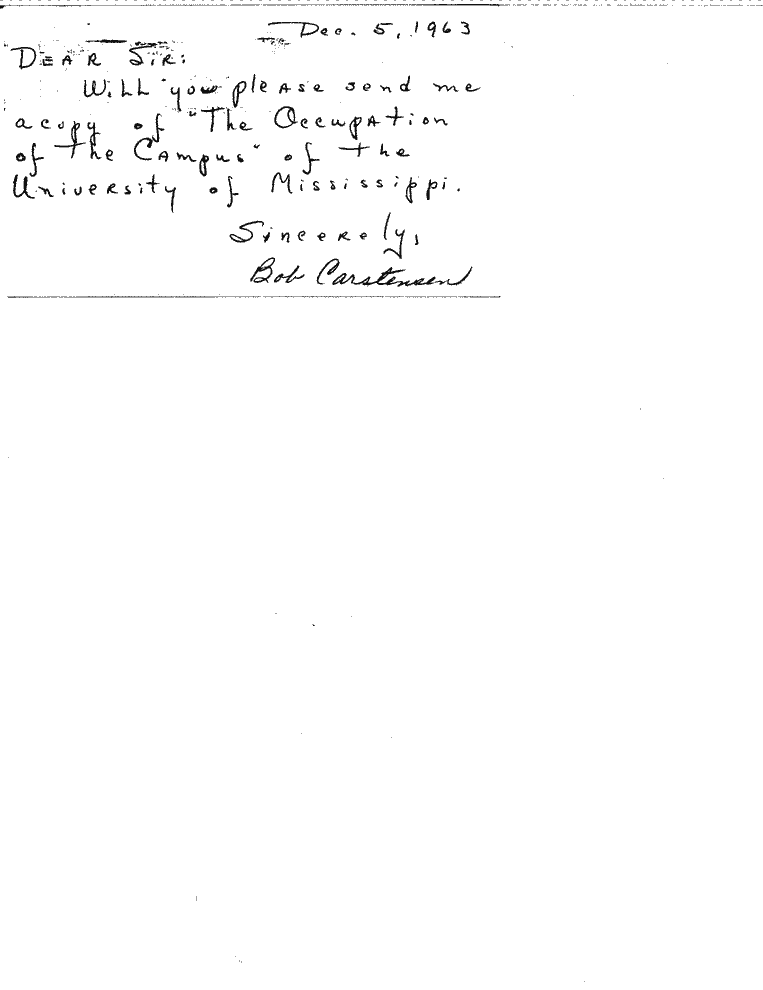 Dec. 5, 1963
DEAR SIR:
Will you please send me
a copy of "The Occupation
of the Campus" of the
University of Mississippi.
Sincerely,
Bob Carstensen